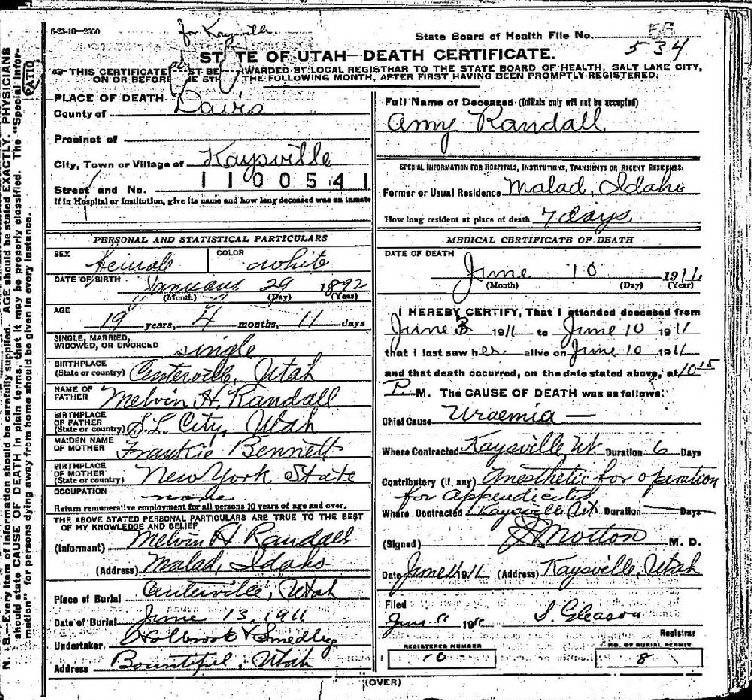 6-23-10-2500
for Kaysville
State Board of Health File No.
534
STATE OF UTAH—DEATH CERTIFICATE.
THIS CERTIFICATE MUST BE FORWARDED BY LOCAL REGISTRAR TO THE STATE BOARD OF HEALTH, SALT LAKE CITY,
ON OR BEFORE THE 5TH OF THE FOLLOWING MONTH, AFTER FIRST HAVING BEEN PROMPTLY REGISTERED.
PLACE OF DEATH
County of Davis
Precinct of
City, Town or Village of Kaysville
1100541
Street and No.
If in Hospital or Institution, give its name and how long deceased was an inmate
Full Name of Deceased (Initials only will not be accepted)
Amy Randall
SPECIAL INFORMATION FOR HOSPITALS, INSTITUTIONS, TRANSIENTS OR RECENT RESIDENTS:
Former or Usual Residence Malad, Idaho
How long resident at place of death 7 days
PERSONAL AND STATISTICAL PARTICULARS
SEX female COLOR white
DATE OF BIRTH January 29 1892
(Month) (Day) (Year)
AGE
19 years, 4 months, 11 days
SINGLE, MARRIED,
WIDOWED, OR DIVORCED single
BIRTHPLACE
(State or country) Centerville, Utah
NAME OF
FATHER Melvin H. Randall
BIRTHPLACE
OF FATHER
(State or country) S.L. City, Utah
MAIDEN NAME
OF MOTHER Frankie Bennett
BIRTHPLACE
OF MOTHER
(State or country) New York State
OCCUPATION
Return remunerative employment for all persons 10 years of age and over.
THE ABOVE STATED PERSONAL PARTICULARS ARE TRUE TO THE BEST
OF MY KNOWLEDGE AND BELIEF
(Informant) Melvin H Randall
(Address) Malad, Idaho
Place of Burial Centerville, Utah
Date of Burial June 13, 1911
Undertaker Holbrook & Smedley
Address Bountiful, Utah
MEDICAL CERTIFICATE OF DEATH
DATE OF DEATH
June 10 1911
(Month) (Day) (Year)
I HEREBY CERTIFY, That I attended deceased from
June 3 1911 to June 10 1911
that I last saw her alive on June 10 1911
and that death occurred, on the date stated above, at 10 15
P. M. The CAUSE OF DEATH was as follows:
Chief Cause Uraemia
Where Contracted Kaysville Ut Duration 6 Days
Contributory (if any) Anesthetic for operation
for Appendicitis
Where Contracted Kaysville Ut. Duration Days
(Signed) M. D.
Date June 11 1911 (Address) Kaysville, Utah
Filed
S. Gleason
Registrar
REGISTERED NUMBER
NO. OF BURIAL PERMIT
8
(OVER)
N. B.—Every item of information should be carefully supplied. AGE should be stated EXACTLY. PHYSICIANS
should state CAUSE OF DEATH in plain terms, that it may be properly classified. The "Special Infor-
mation" for persons dying away from home should be given in every instance.